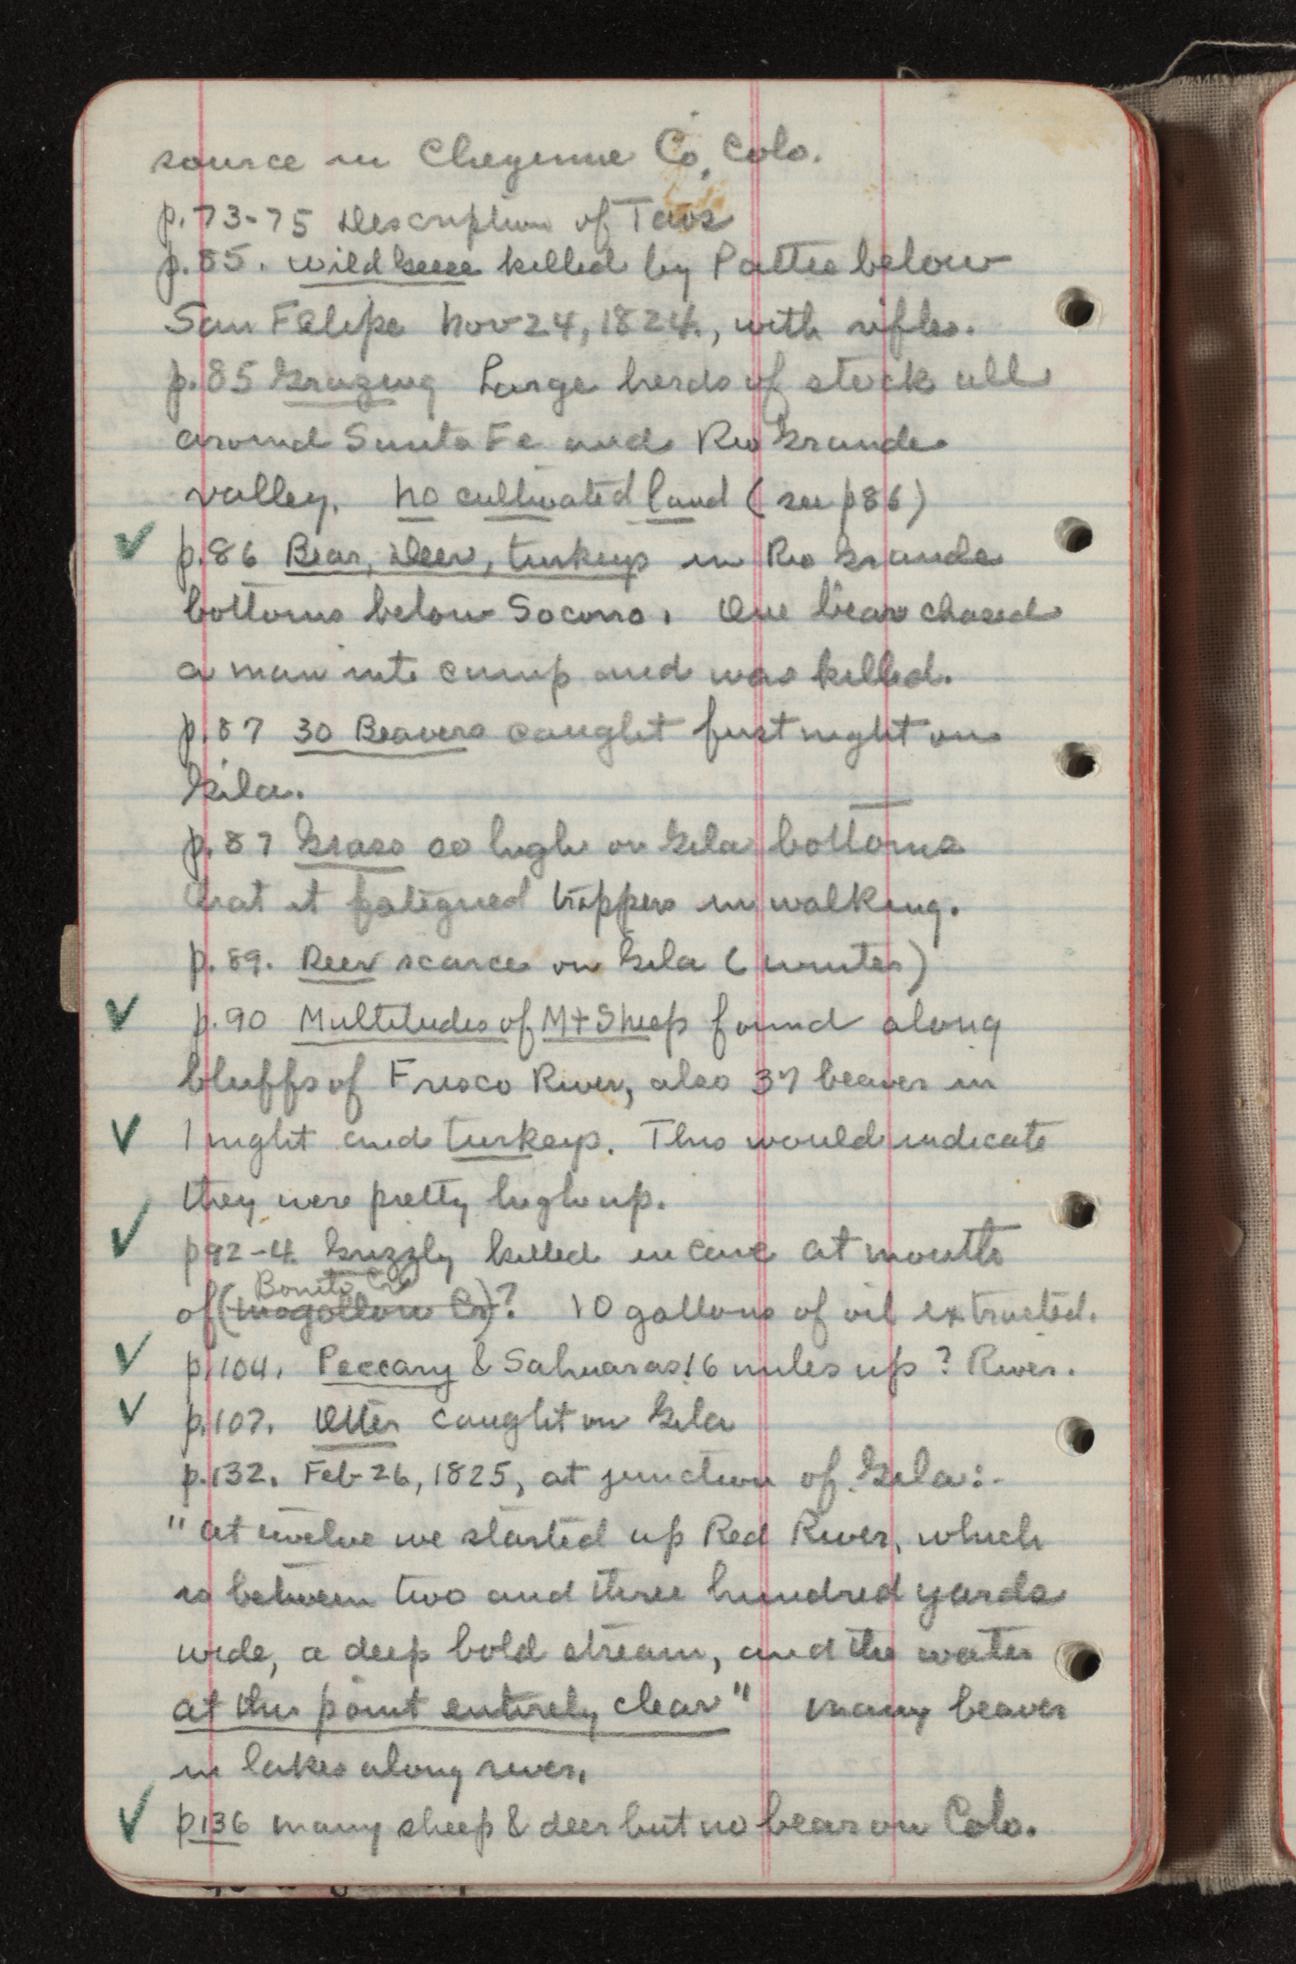 source in Cheyenne Co, Colo.
p.73-75 Description of Taos
p.85. wild geese killed by Pattie below
San Felipe Nov 24, 1824, with rifles.
p.85 Grazing Large herds of stock all
around Santa Fe and Rio Grande
valley. No cultivated land (see p86)
✓ p.86 Bear, Deer, turkeys in Rio Grande
bottoms below Socorro. One bear chased
a man into camp and was killed.
p.87 30 Beavers caught first night on
Gila.
p.87 Grass so high on Gila bottoms
that it fatigued trappers in walking.
p.89. Deer scarce on Gila (winter)
✓ p.90 Multitudes of Mt Sheep found along
bluffs of Frisco River, also 37 beaver in
✓ 1 night and turkeys. This would indicate
they were pretty high up.
✓ p92-4 Grizzly killed in cave at mouth
Bonito Cr
of (Mogollon Cr)? 10 gallons of oil extracted.
✓ p.104. Peccary & Sahuaras 16 miles up ? River.
✓ p.107. Otter caught on Gila
p.132. Feb 26, 1825, at junction of Gila:-
"At twelve we started up Red River, which
is between two and three hundred yards
wide, a deep bold stream, and the water
at this point entirely clear" Many beaver
in lakes along river.
✓ p136 many sheep & deer but no bear on Colo.